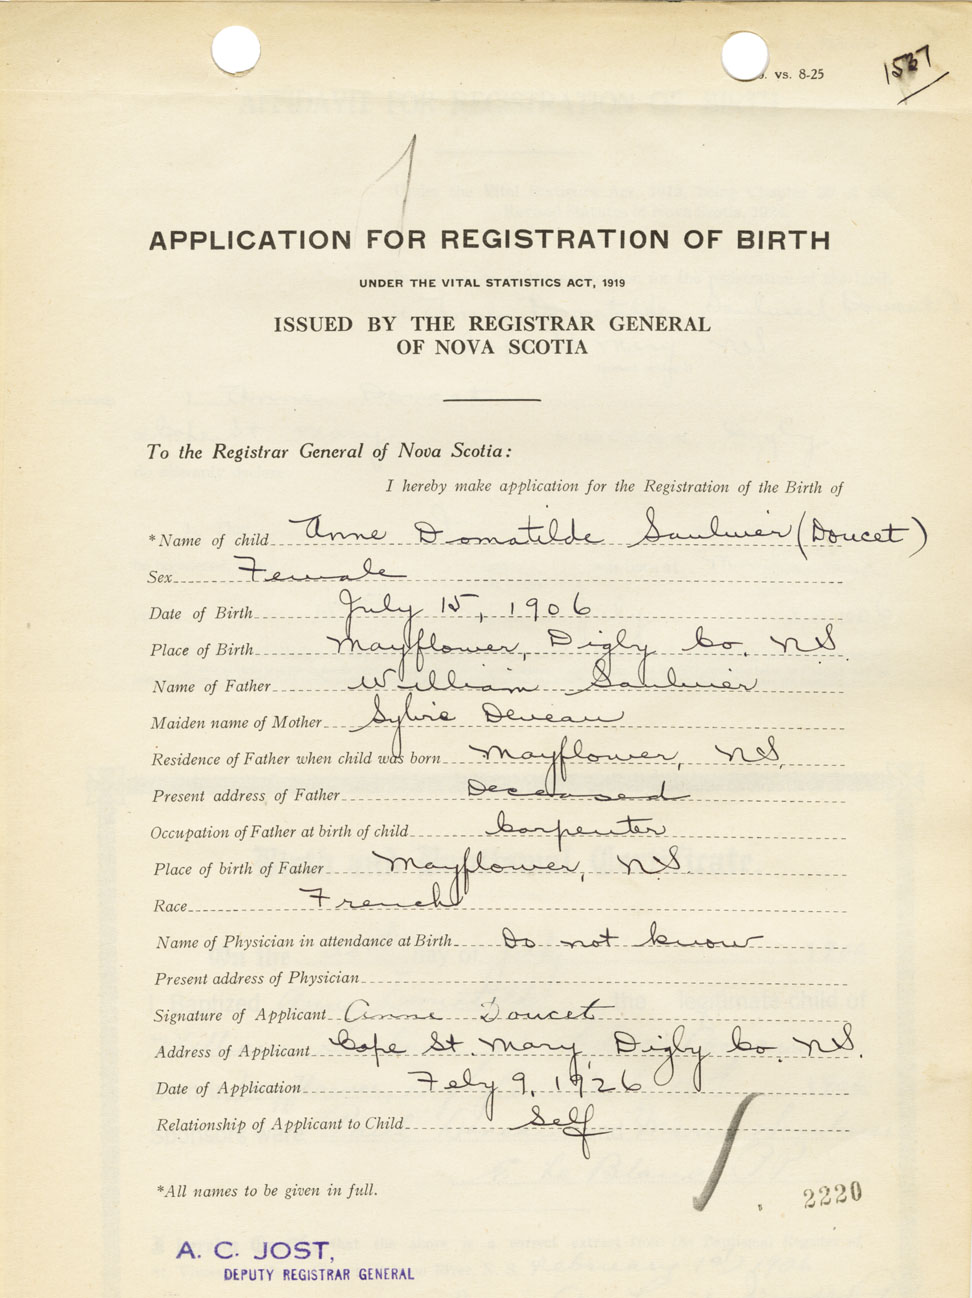 vs. 8-25
1537
APPLICATION FOR REGISTRATION OF BIRTH
UNDER THE VITAL STATISTICS ACT, 1919
ISSUED BY THE REGISTRAR GENERAL
OF NOVA SCOTIA
To the Registrar General of Nova Scotia:
I hereby make application for the Registration of the Birth of
*Name of child Anne Domatilde Saulnier (Doucet)
Sex Female
Date of Birth July 15, 1906
Place of Birth Mayflower, Digby Co. NS.
Name of Father William Saulnier
Maiden name of Mother Sylvie Deveau
Residence of Father when child was born Mayflower, NS,
Present address of Father Deceased
Occupation of Father at birth of child Carpenter
Place of birth of Father Mayflower, NS.
Race French
Name of Physician in attendance at Birth Do not know
Present address of Physician
Signature of Applicant Anne Doucet
Address of Applicant Cape St. Mary, Digby Co. NS.
Date of Application Feby 9, 1926
Relationship of Applicant to Child Self
*All names to be given in full.
2220
A. C. JOST,
DEPUTY REGISTRAR GENERAL